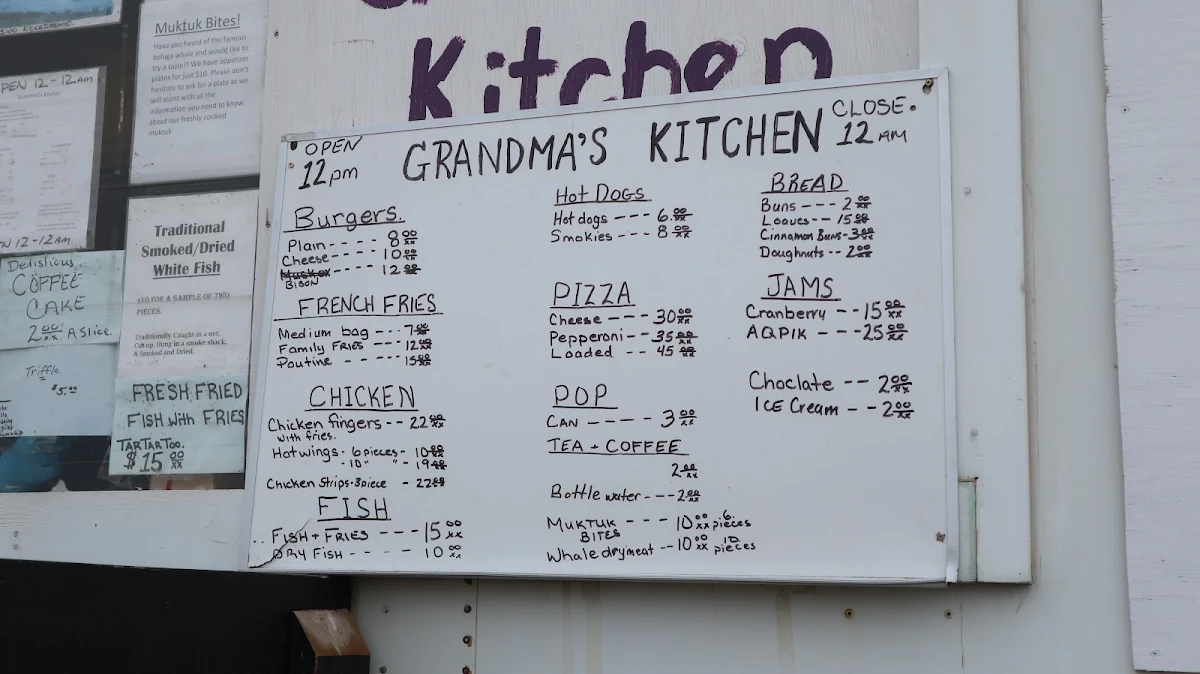 Kitchen
Muktuk Bites!
Have you heard of the famous
beluga whale and would like to
try a taste?! We have appetizer
plates for just $10. Please don't
hesitate to ask for a plate as we
will assist with all the
information you need to know
about our freshly cooked
muktuk.
PEN 12-12AM
N 12-12AM
Traditional
Smoked/Dried
White Fish
$10 FOR A SAMPLE OF TWO
PIECES.
Traditionally Caught in a net,
Cut up, Hung in a smoke shack,
& Smoked and Dried.
Delicious
COFFEE
CAKE
2.00 xx A Slice
Triffle
$5.00
FRESH FRIED
FISH with FRIES
TARTAR TOO.
$15 00 xx
OPEN
12pm
GRANDMA'S KITCHEN
CLOSE.
12 AM
Burgers.
Plain - - - - 8 00 xx
Cheese - - - - 10 00 xx
Muskox - - - - 12 00 xx
BISON
FRENCH FRIES
Medium bag - - - 7 00 xx
Family FRIES - - - 12 00 xx
Poutine - - - - 15 00 xx
CHICKEN
Chicken fingers - - 22 00 xx
with fries.
Hotwings - 6 pieces - 10 00 xx
- 10 " " - 19 00 xx
Chicken Strips - 3 piece - 22 00 xx
FISH
FISH + FRIES - - - 15 00 xx
DRY FISH - - - - - 10 00 xx
Hot DOGS
Hot dogs - - - 6.00 xx
Smokies - - - 8 00 xx
PIZZA
Cheese - - - 30 00 xx
Pepperoni - - - 35 00 xx
Loaded - - 45 00 xx
POP
CAN - - - - 3 00 xx
TEA + COFFEE
2 00 xx
Bottle water - - - 2 00 xx
MUKTUK - - - 10 00 xx 6 pieces
BITES
Whale drymeat - - 10 00 xx 10 pieces
BREAD
Buns - - - 2 00 xx
Loaves - - 15 00 xx
Cinnamon Buns - 3 00 xx
Doughnuts - - 2 00 xx
JAMS
Cranberry - - 15 00 xx
AQPIK - - - 25 00 xx
Choclate - - 2 00 xx
ICE Cream - - 2 00 xx